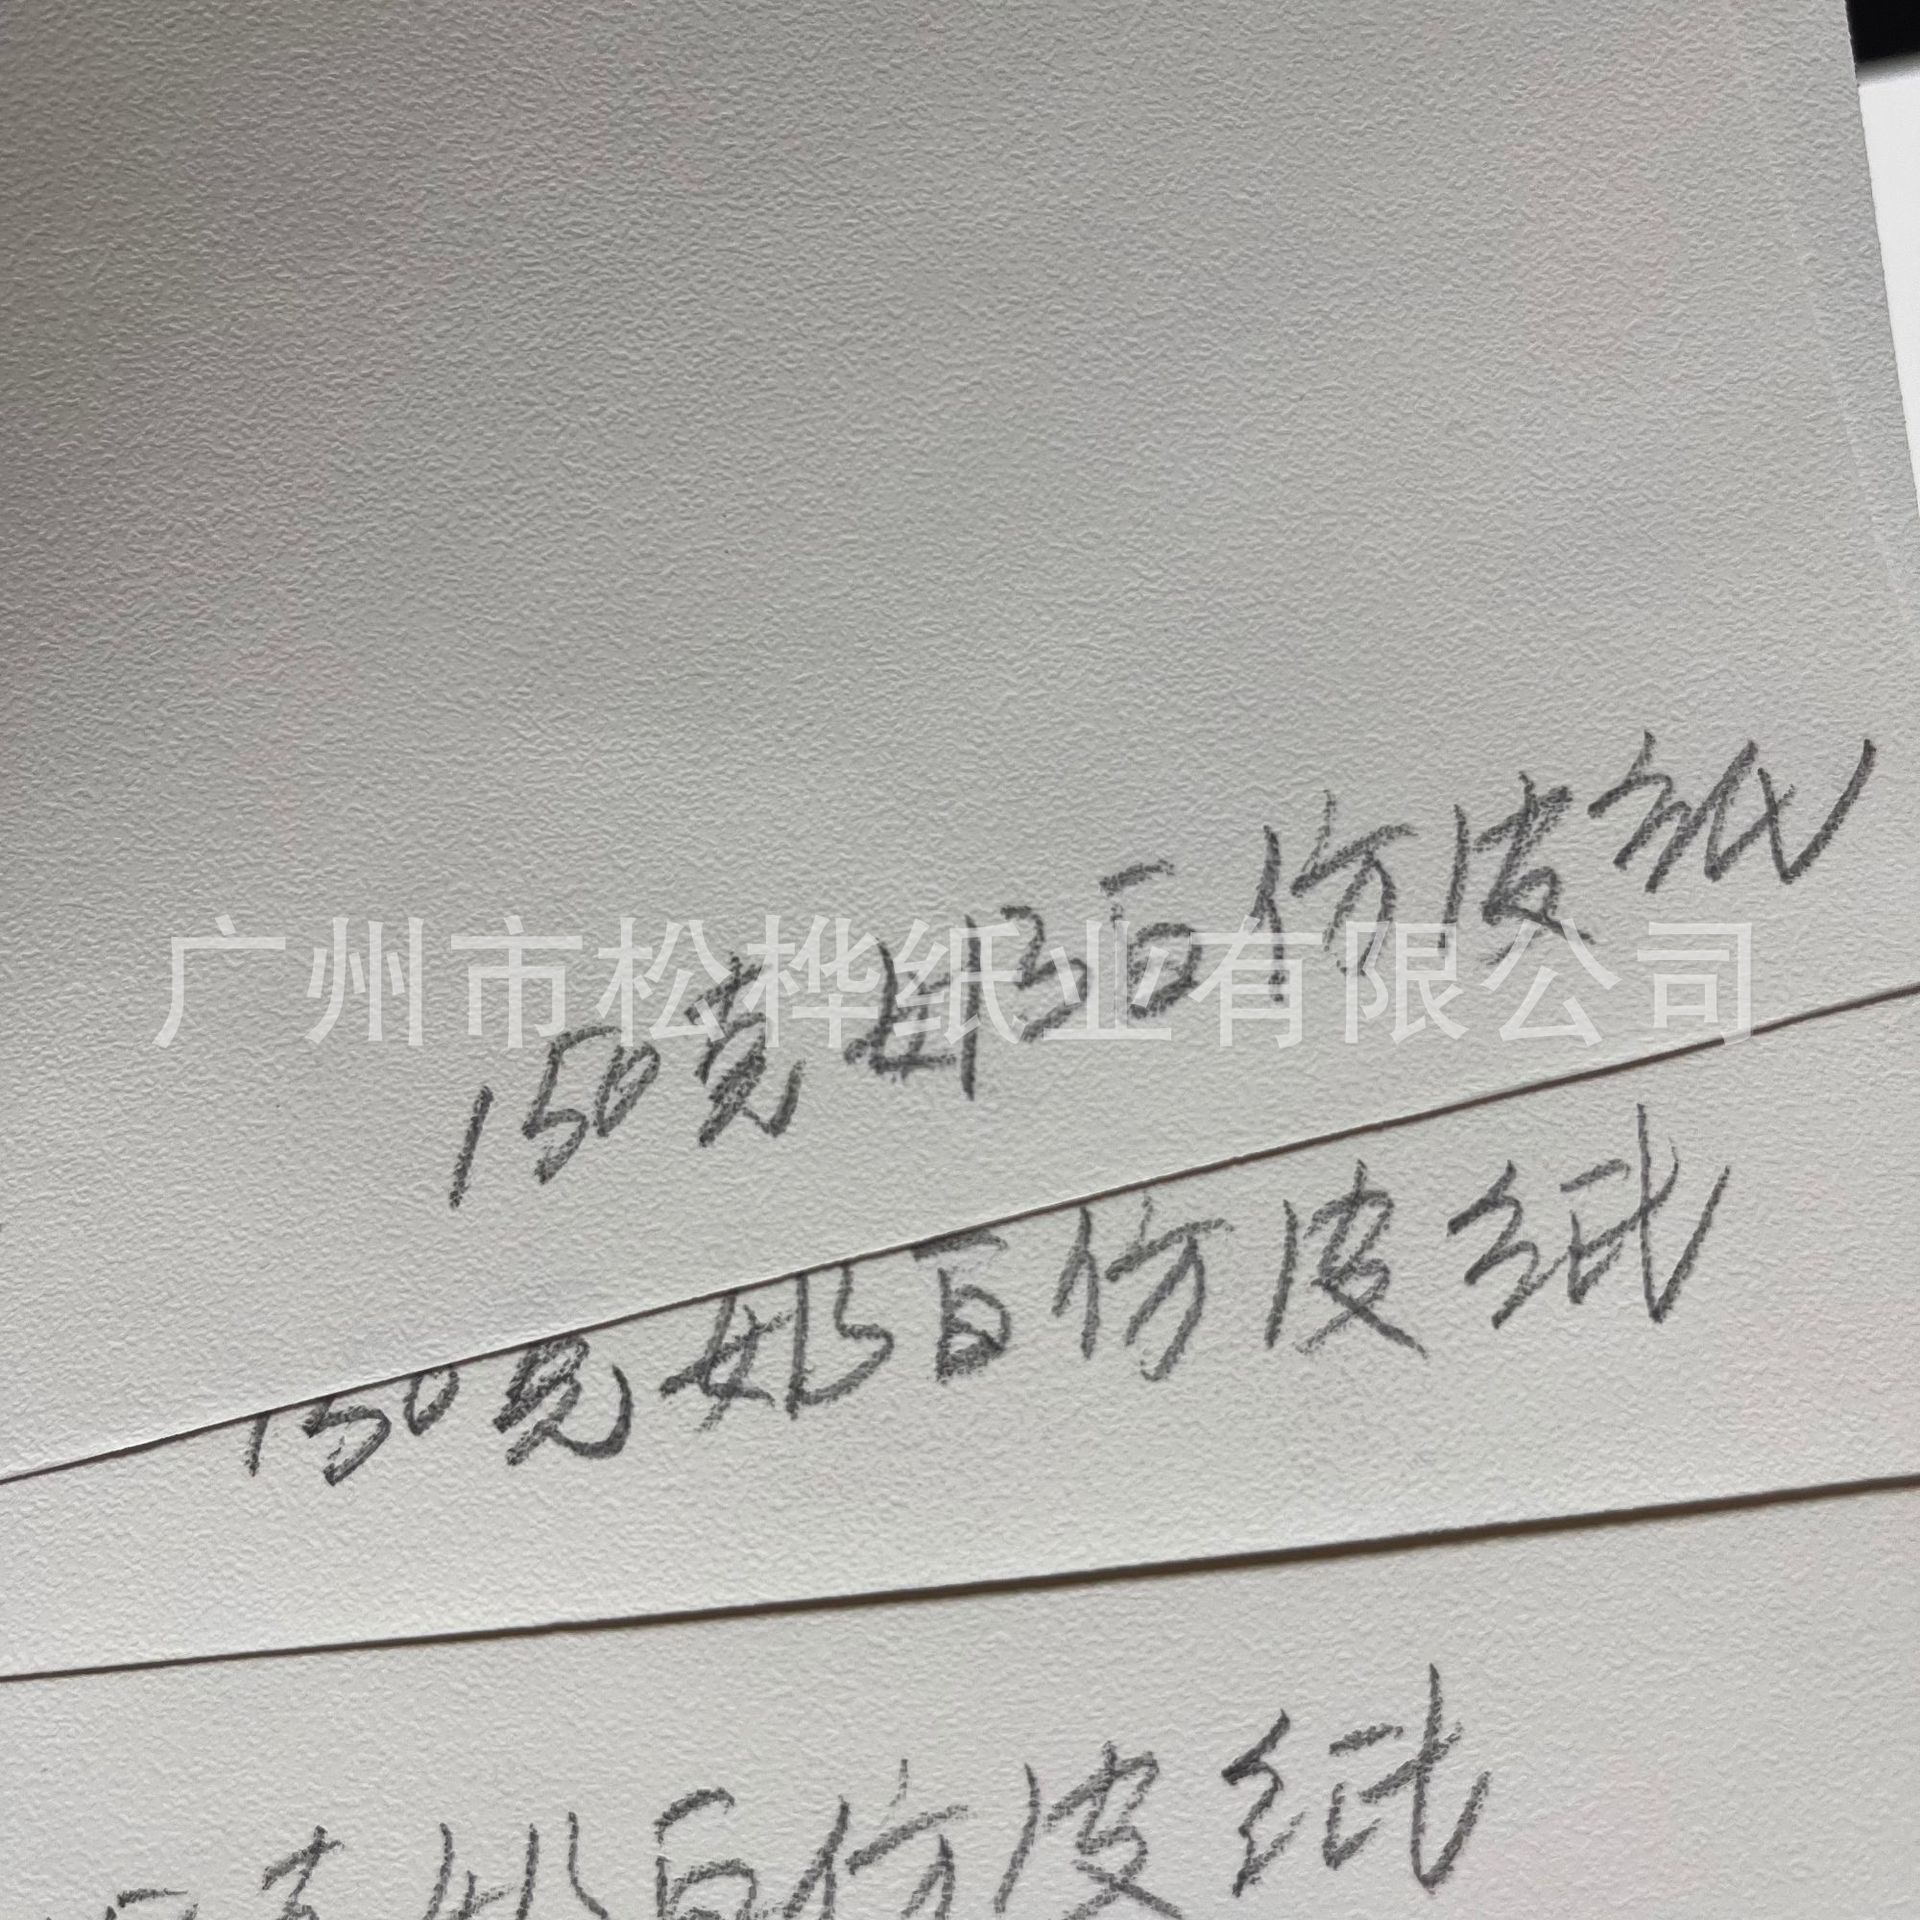 150克奶百仿皮纸
广州市松桦纸业有限公司
150克奶百仿皮纸
克奶百仿皮纸